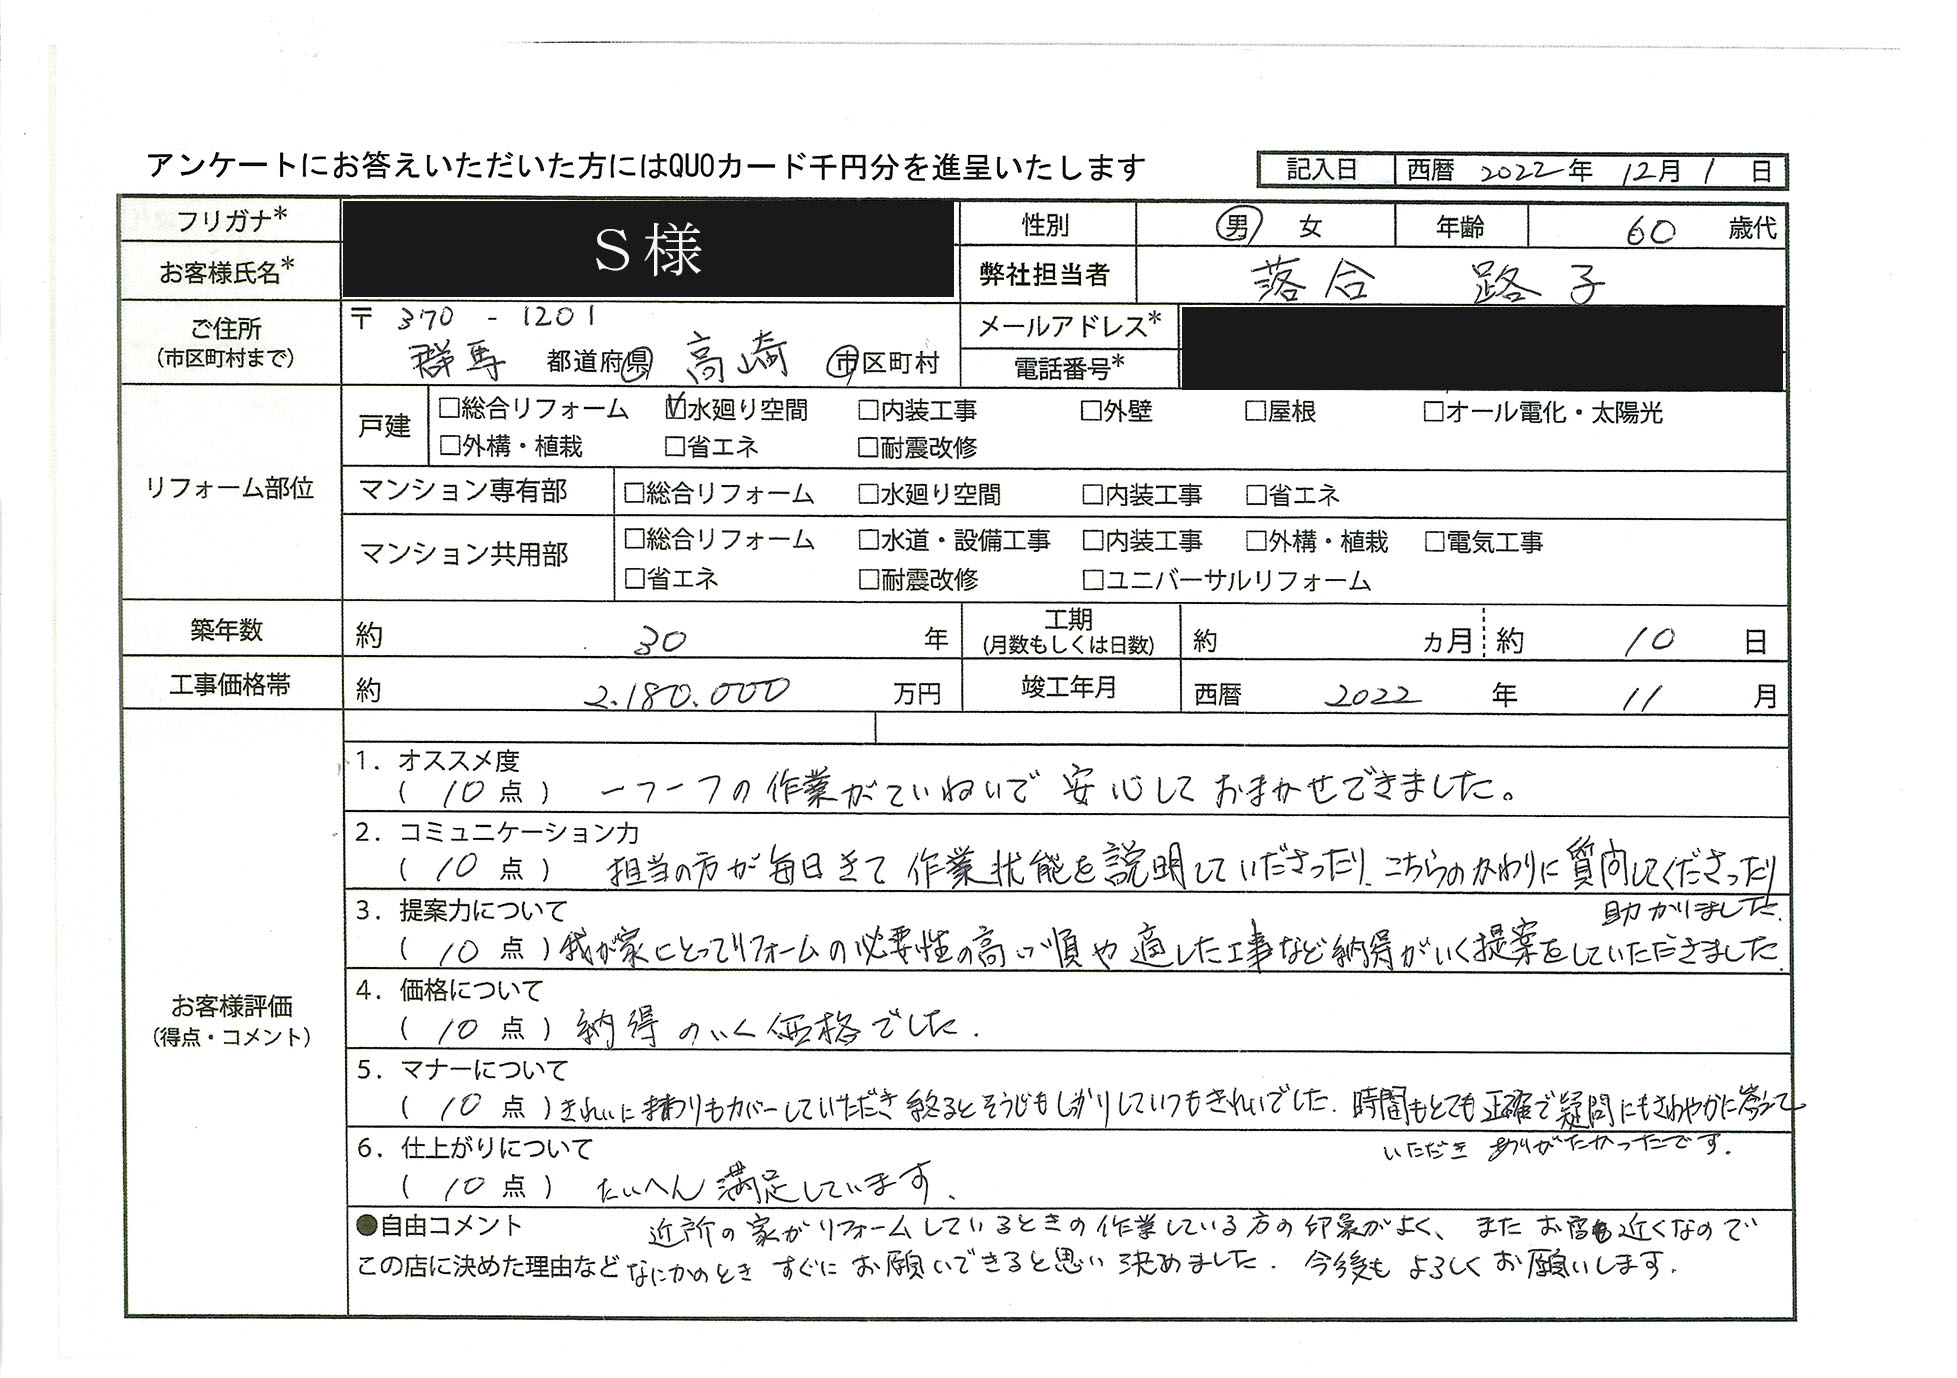 アンケートにお答えいただいた方にはQUOカード千円分を進呈いたします
記入日 西暦 2022年 12月 1日
フリガナ* S様 性別 男 女 年齢 60 歳代
お客様氏名* 弊社担当者 落合 路子
ご住所 (市区町村まで) 〒 370 - 1201 メールアドレス*
群馬 都道府県 高崎 市区町村 電話番号*
リフォーム部位
戸建 □総合リフォーム ☑水廻り空間 □内装工事 □外壁 □屋根 □オール電化・太陽光
□外構・植栽 □省エネ □耐震改修
マンション専有部 □総合リフォーム □水廻り空間 □内装工事 □省エネ
マンション共用部 □総合リフォーム □水道・設備工事 □内装工事 □外構・植栽 □電気工事
□省エネ □耐震改修 □ユニバーサルリフォーム
築年数 約 30 年 工期 (月数もしくは日数) 約 カ月 約 10 日
工事価格帯 約 2.180.000 万円 竣工年月 西暦 2022 年 11 月
お客様評価
(得点・コメント)
1. オススメ度
( 10 点 ) 一つ一つの作業がていねいで 安心して おまかせできました。
2. コミュニケーション力
( 10 点 ) 担当の方が毎日きて 作業状能を説明していださったり、こちらのかわりに質問してくださったり
助かりました.
3. 提案力について
( 10 点 ) 我が家にとってリフォームの必要性の高い順や 適した工事など納得がいく提案をしていただきました.
4. 価格について
( 10 点 ) 納得 のいく 価格でした.
5. マナーについて
( 10 点 ) きれいに まわりもカバーしていただき 終るとそうじもしっかりしていつもきれいでした. 時間もとても正確で疑問にもさわやかに答えて
いただき ありがたかったです.
6. 仕上がりについて
( 10 点 ) たいへん 満足しています.
●自由コメント 近所の家がリフォームしているときの作業している方の印象がよく、また お店も近くなので
この店に決めた理由など なにかのとき すぐに お願いできると思い 決めました. 今後も よろしく お願いします.